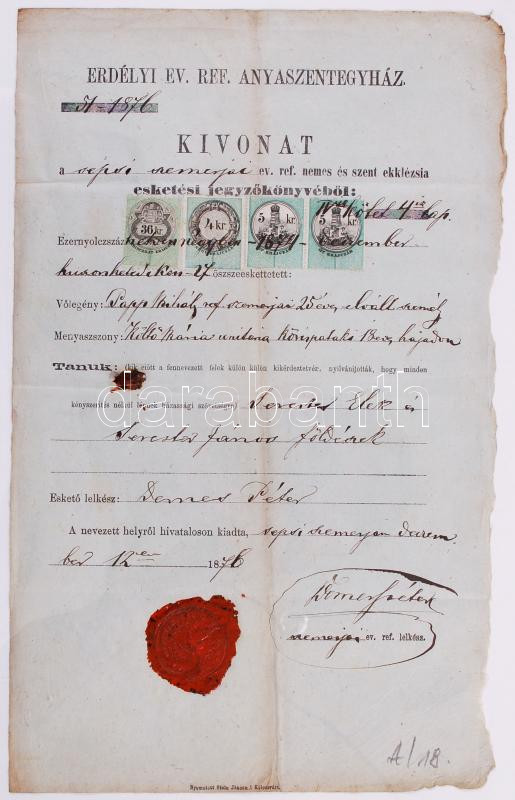 ERDÉLYI EV. REF. ANYASZENTEGYHÁZ.
51-1876
KIVONAT
a sepsi szemerjai ev. ref. nemes és szent ekklézsia
esketési jegyzőkönyvéből:
Kötet 4 lap.
36 kr
4 kr
5 kr.
5 kr.
Ezernyolczszáz hetvennegyben 1874
27 öszszeeskettetett:
Vőlegény: Papp Mihály ref szemerjai 25 éves elvált személy
Menyaszszony: Költő Mária unitária
Tanuk: (kik előtt a fennevezett felek külön külön kikérdeztetvén, nyilvánitották, hogy minden
kényszerités nélkül lépnek házassági szövetségre)
Elek és
János
Eskető lelkész: Demes Péter
A nevezett helyről hivatalosan kiadta, sepsi szemerjan decem
ber 12én 1876
Demes Péter
szemerjai ev. ref. lelkész.
A/18.
Nyomatott Stein Jánosnál Kolozsvárt.
darabanth